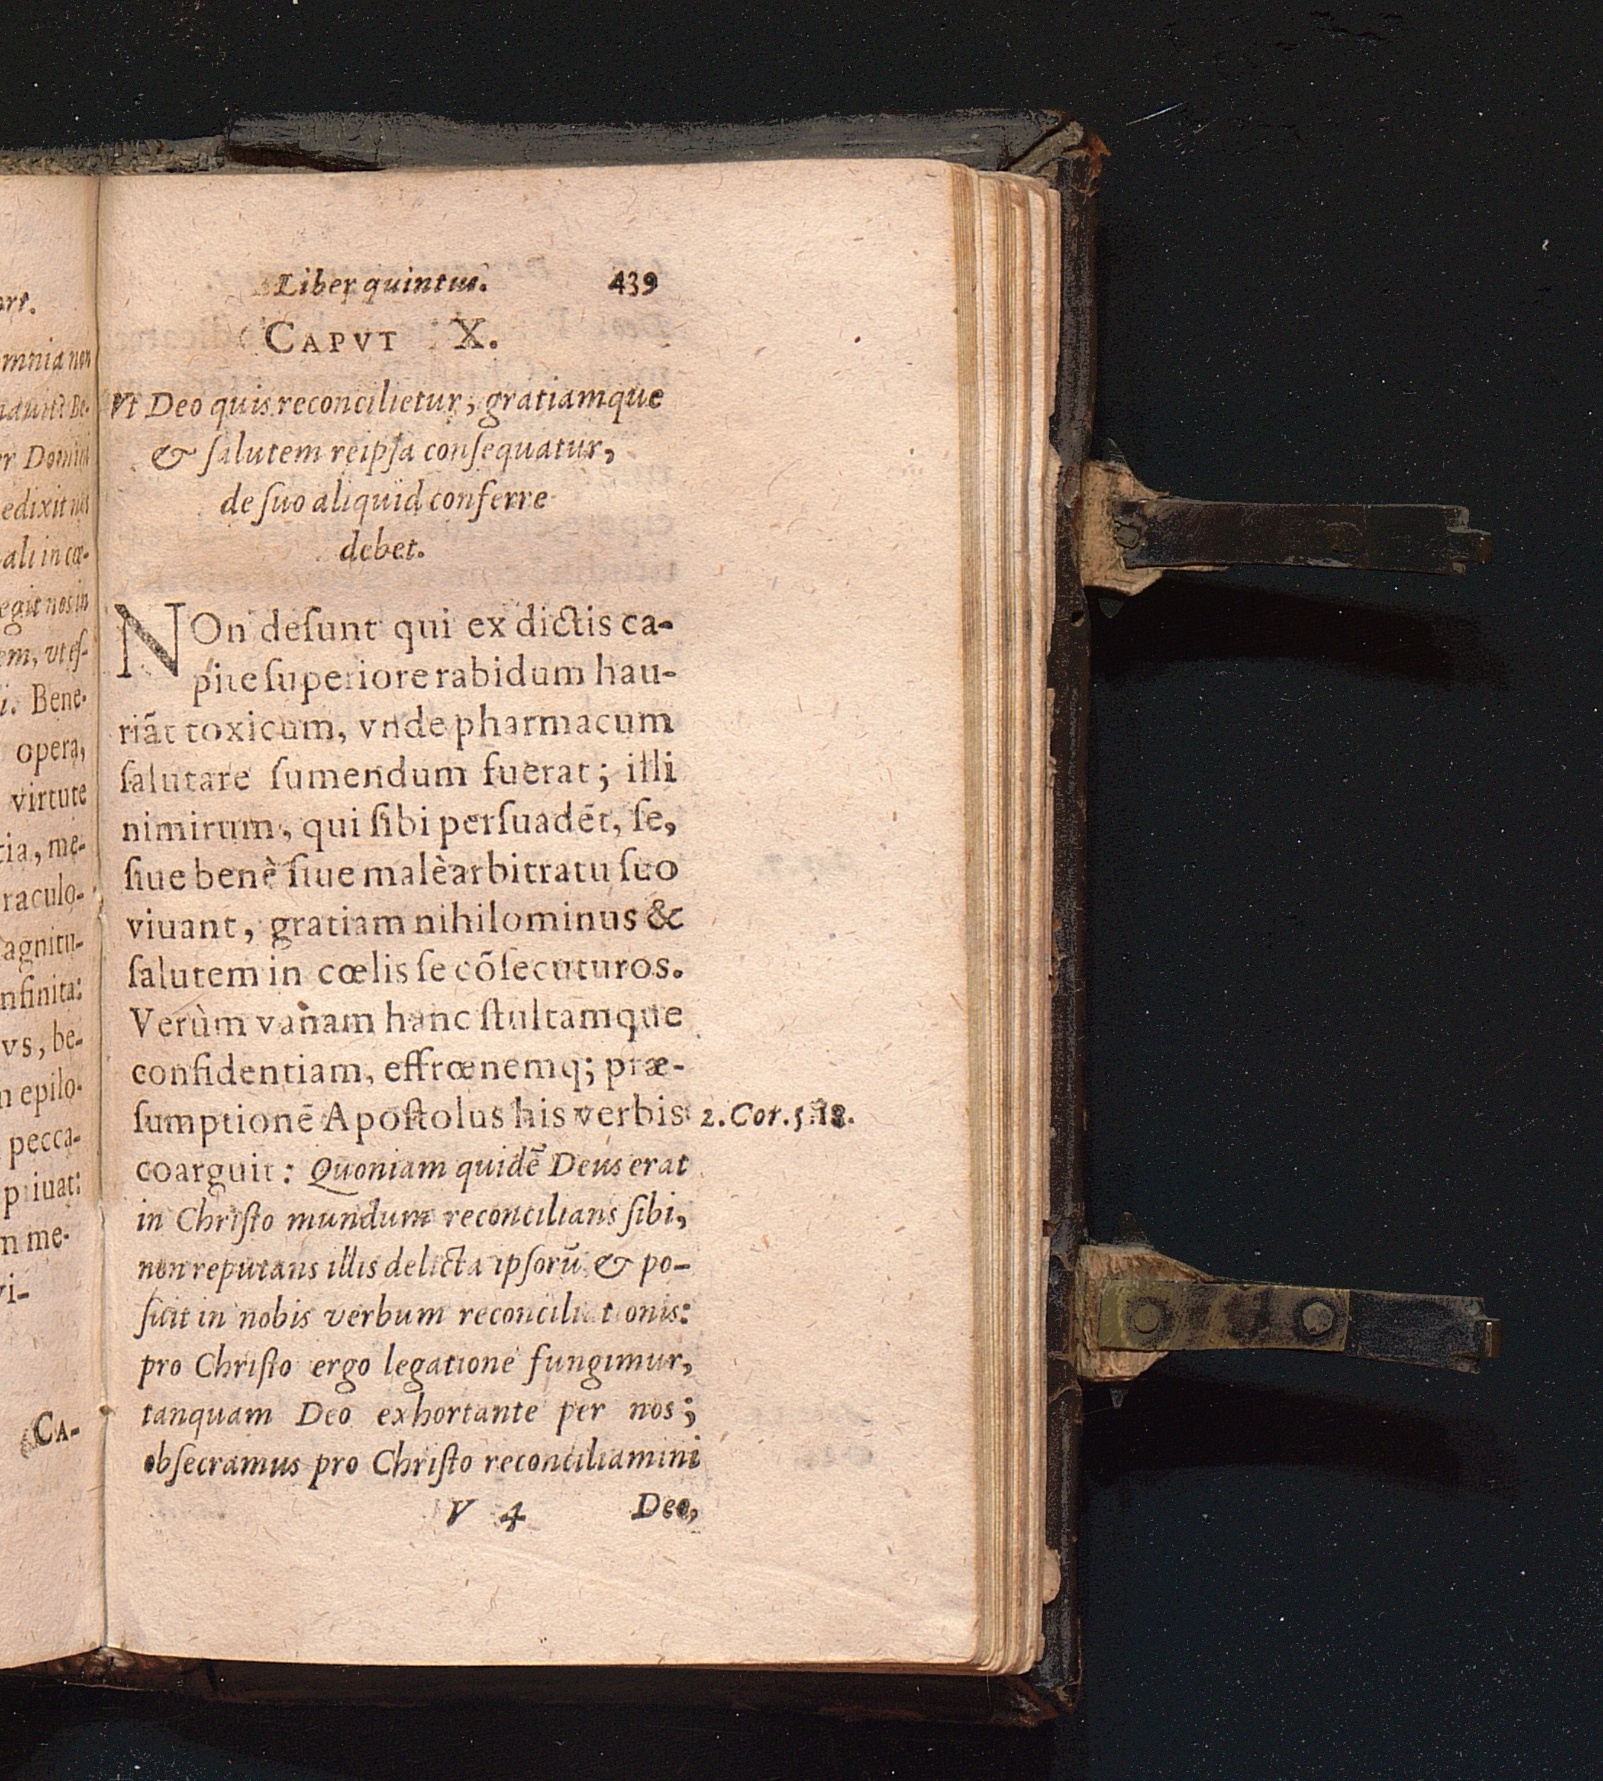 ort.
omnia non
Domini
edixit
ali in cœ-
egit nos in
em, vt es-
i. Bene-
opera,
virtute
tia, me-
raculo-
agnitu-
nfinita:
vs, be-
n epilo-
pecca-
priuat:
n me-
vi-
CA-
Liber quintus. 439
CAPVT X.
Vt Deo quis reconcilietur, gratiamque
& ſalutem reipſa conſequatur,
de ſuo aliquid conferre
debet.
NOn deſunt qui ex dictis ca-
pite ſuperiore rabidum hau-
riāt toxicum, vnde pharmacum
ſalutare ſumendum fuerat; illi
nimirum, qui ſibi perſuadēt, ſe,
ſiue benè ſiue malè arbitratu ſuo
viuant, gratiam nihilominus &
ſalutem in cœlis ſe cōſecuturos.
Verùm vanam hanc ſtultamque
confidentiam, effrœnemq; præ-
ſumptionē Apoſtolus his verbis 2. Cor. 5. 18.
coarguit: Quoniam quidē Deus erat
in Chriſto mundum reconcilians ſibi,
non reputans illis delicta ipſorū & po-
ſuit in nobis verbum reconciliationis:
pro Chriſto ergo legatione fungimur,
tanquam Deo exhortante per nos;
obſecramus pro Chriſto reconciliamini
V 4 Deo,